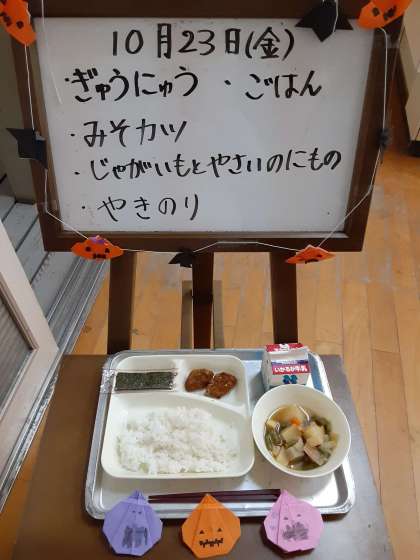 10月23日(金)
・ぎゅうにゅう ・ごはん
・みそカツ
・じゃがいもとやさいのにもの
・やきのり
いかるが牛乳